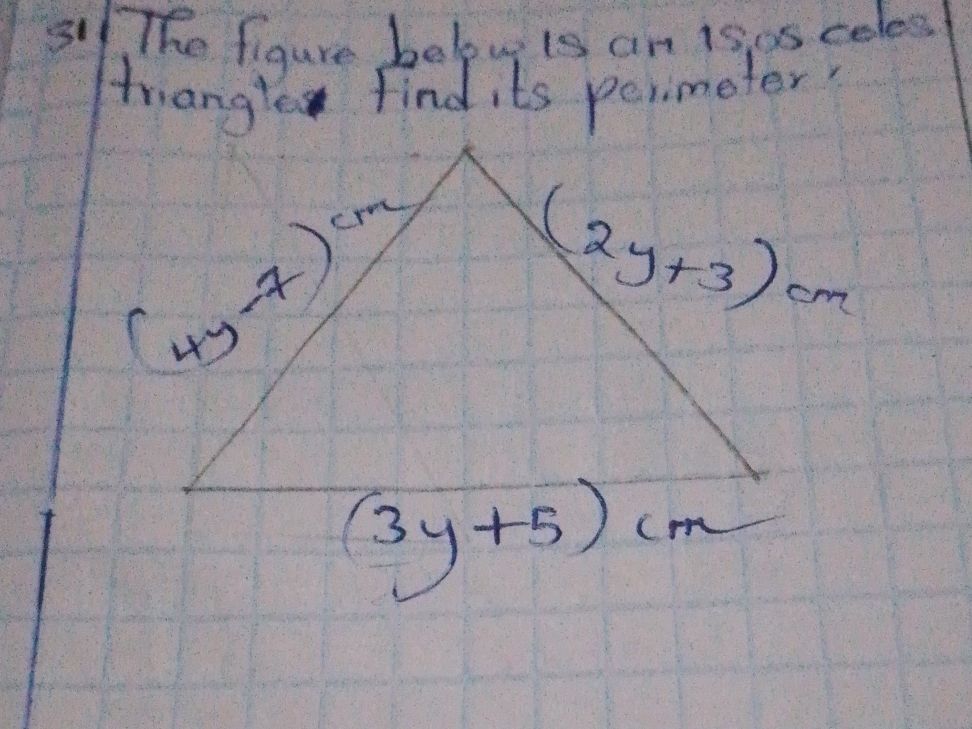 31 The figure below is an isosceles
triangle find its perimeter.
(4y-7) cm
(2y+3) cm
(3y+5) cm